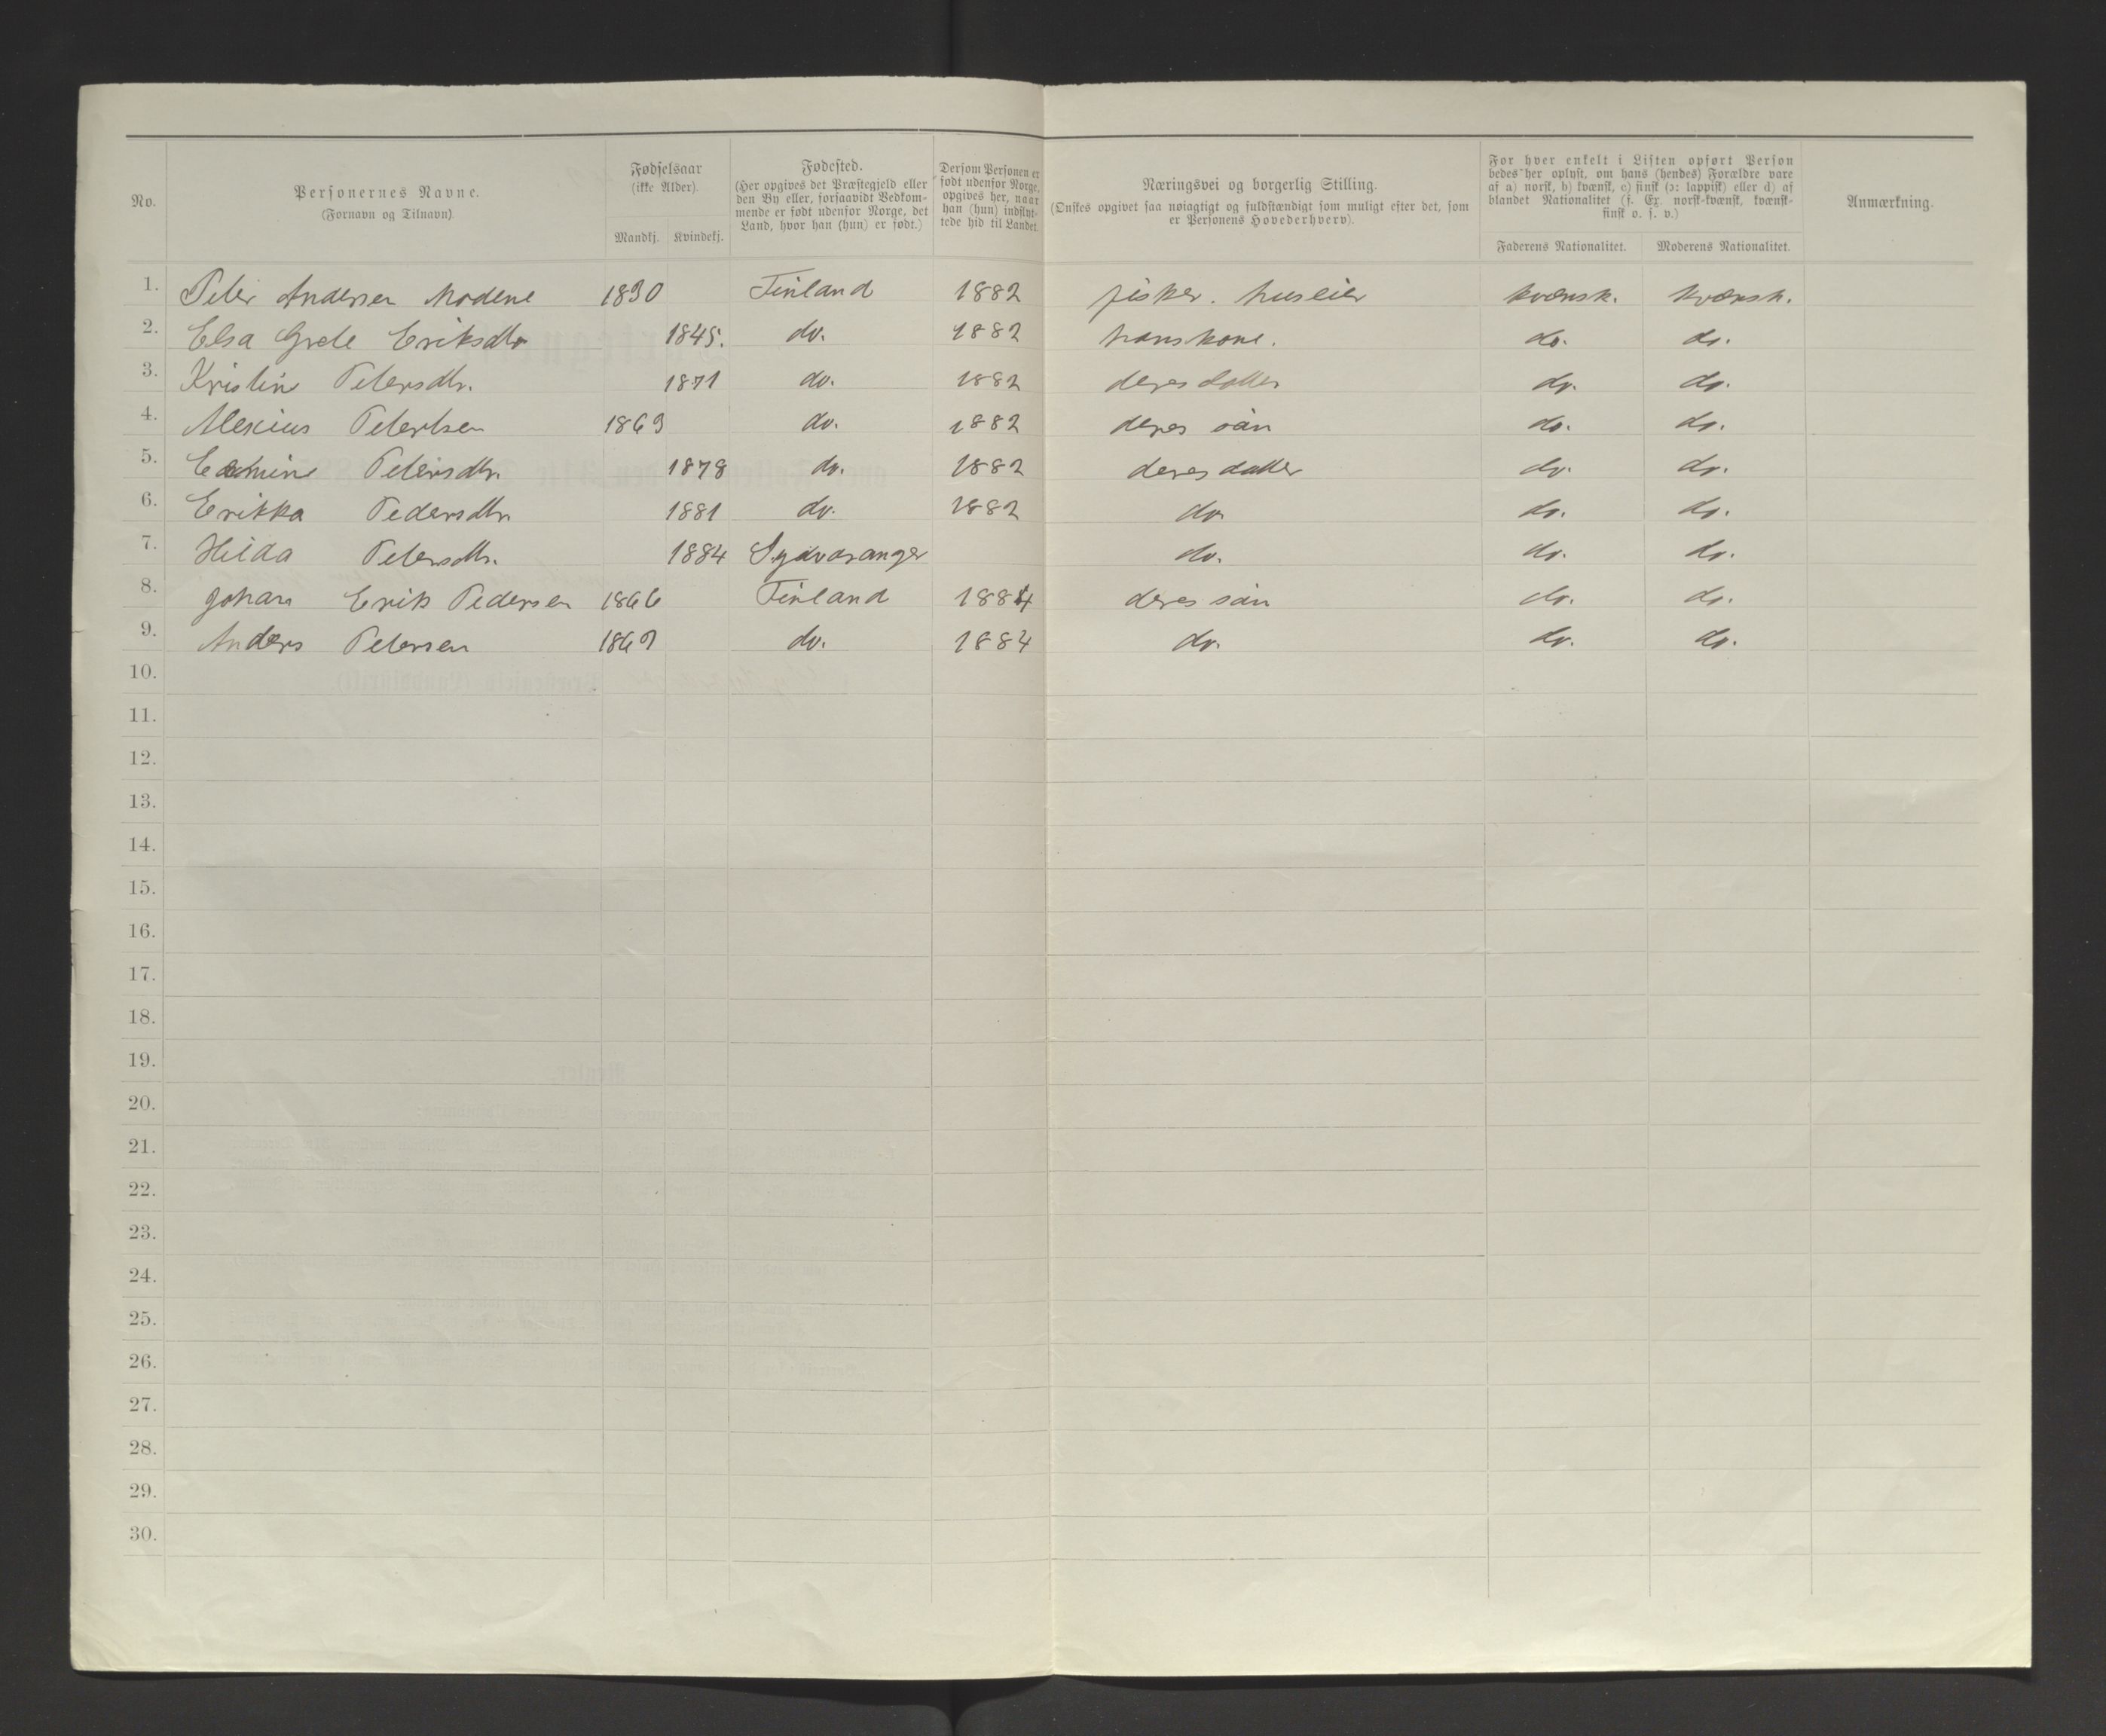 No.
Personernes Navne.
(Fornavn og Tilnavn)
Fødselsaar
(ikke Alder).
Mandkj. Kvindekj.
Fødested.
(Her opgives det Præstegjeld eller
den By eller, forsaavidt Vedkom-
mende er født udenfor Norge, det
Land, hvor han (hun) er født.)
Dersom Personen er
født udenfor Norge,
opgives her, naar
han (hun) indflyt-
tede hid til Landet.
Næringsvei og borgerlig Stilling.
(Ønskes opgivet saa nøiagtigt og fuldstændigt som muligt efter det, som
er Personens Hovederhverv).
For hver enkelt i Listen opført Person
bedes her oplyst, om hans (hendes) Forældre vare
af a) norsk, b) kvænsk, c) finsk (ɔ: lappisk) eller d) af
blandet Nationalitet (s. Ex. norsk-kvænsk, kvænsk-
finsk o. s. v.)
Faderens Nationalitet. Moderens Nationalitet.
Anmærkning.
1. Peter Andersen Modene 1830 Finland 1882 fisker. huseier kvænsk. kvænsk.
2. Elsa Grete Eriksdtr 1845. do. 1882 hans kone. do. do.
3. Kristine Petersdtr. 1871 do. 1882 deres datter do. do.
4. Alexius Petersen 1869 do. 1882 deres sön do. do.
5. Petersdtr. 1878 do. 1882 deres datter do. do.
6. Erikka Pedersdtr. 1881 do. 1882 do do. do.
7. Hilda Petersdtr. 1884 Sydvaranger do. do. do.
8. Johan Erik Pedersen 1866 Finland 1884 deres sön do. do.
9. Anders Petersen do. 1884 do. do. do.
10.
11.
12.
13.
14.
15.
16.
17.
18.
19.
20.
21.
22.
23.
24.
25.
26.
27.
28.
29.
30.